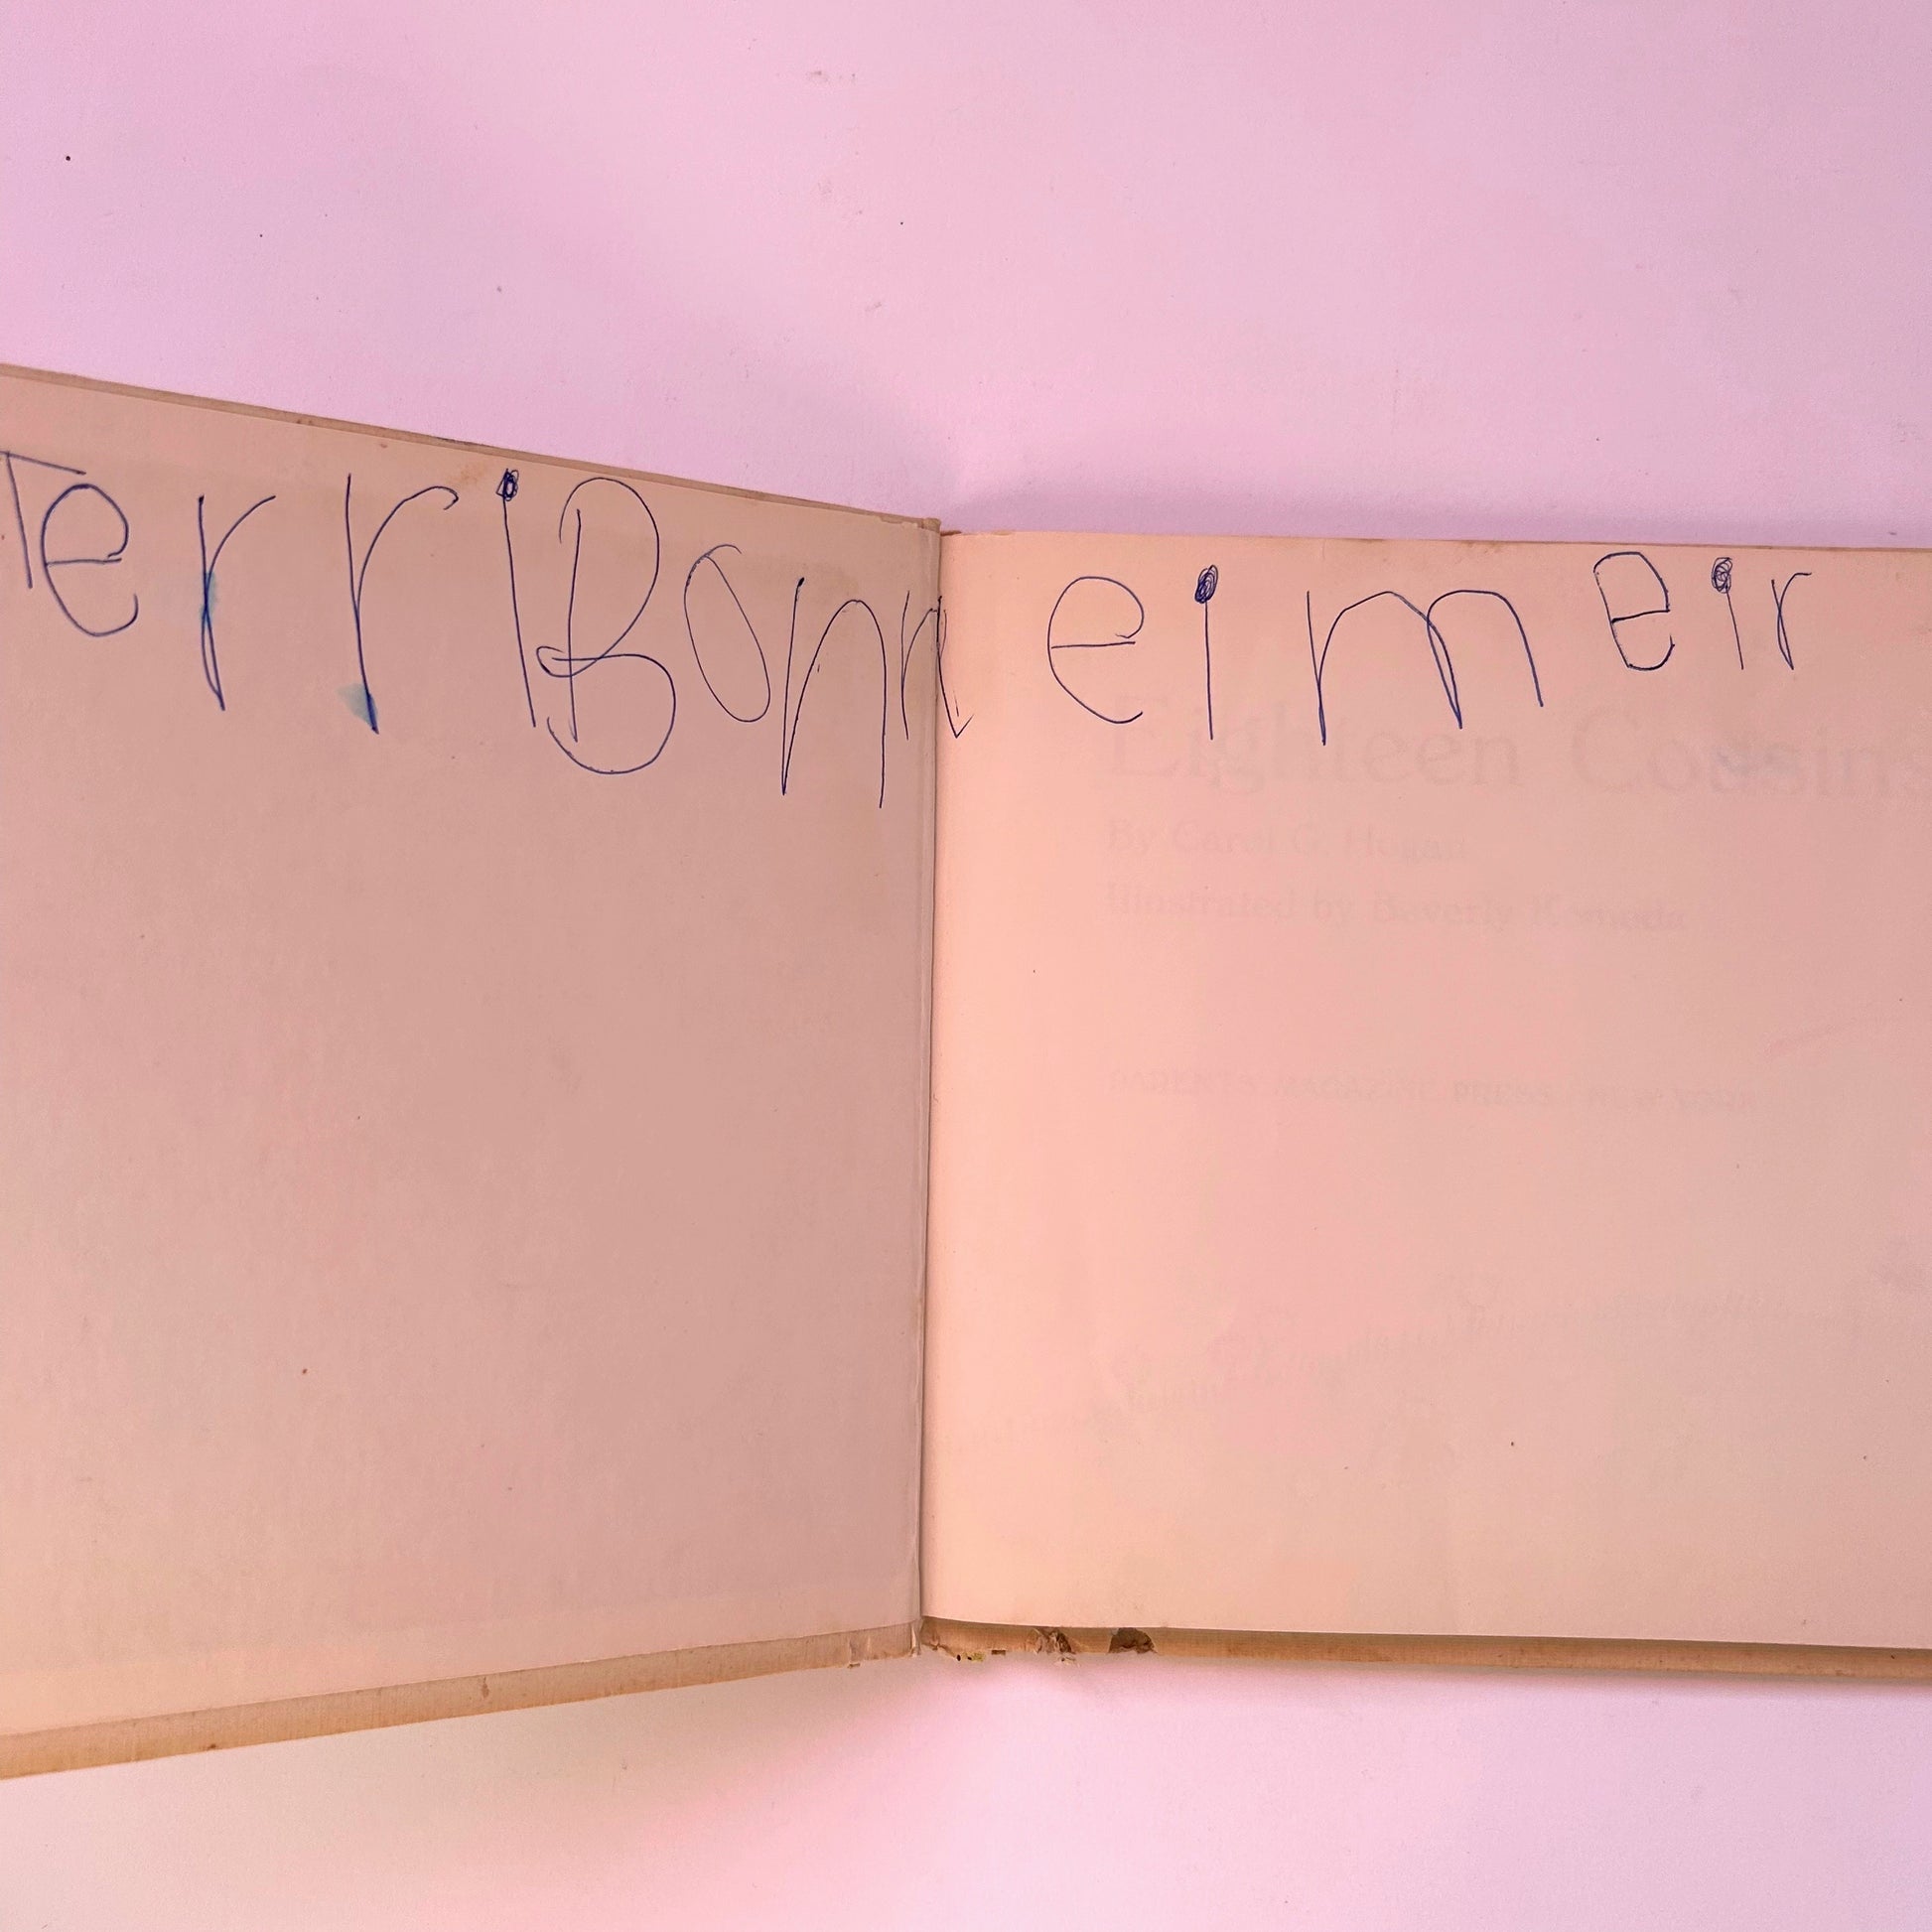 Terri Bonneimeir
Eighteen Cousins
By Carol G. Hogan
Illustrated by Beverly Komoda
PARENTS' MAGAZINE PRESS / NEW YORK